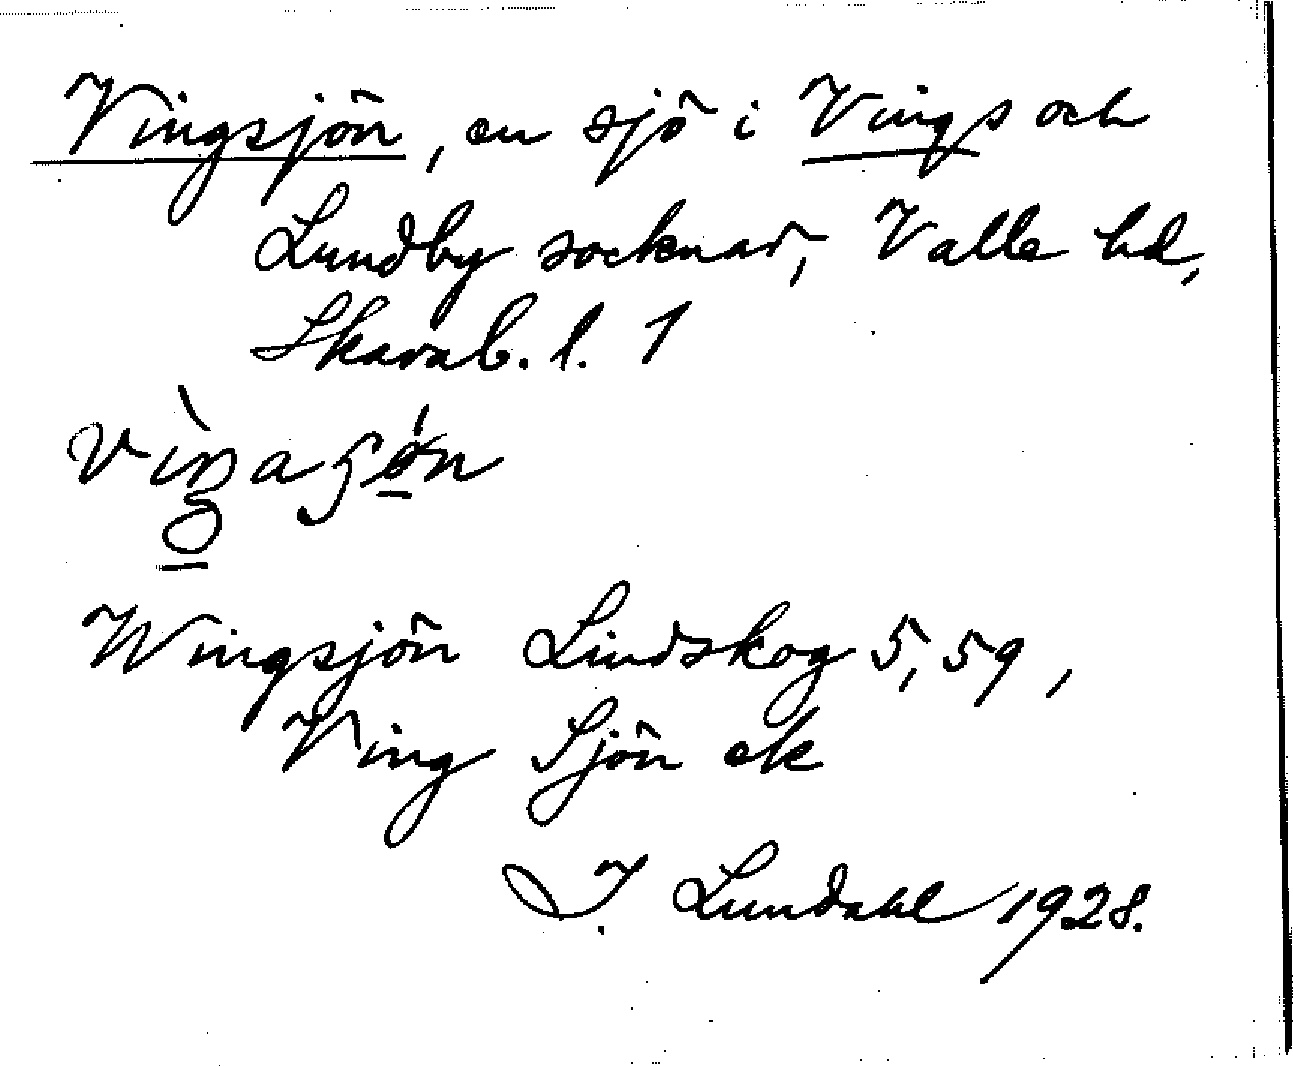 Vingsjön, en sjö i Vings och
Lundby socknar, Valle hd,
Skarab. l. 1
Wingsjön Lindskog 5, 59,
Ving Sjön ek
I. Lundahl 1928.